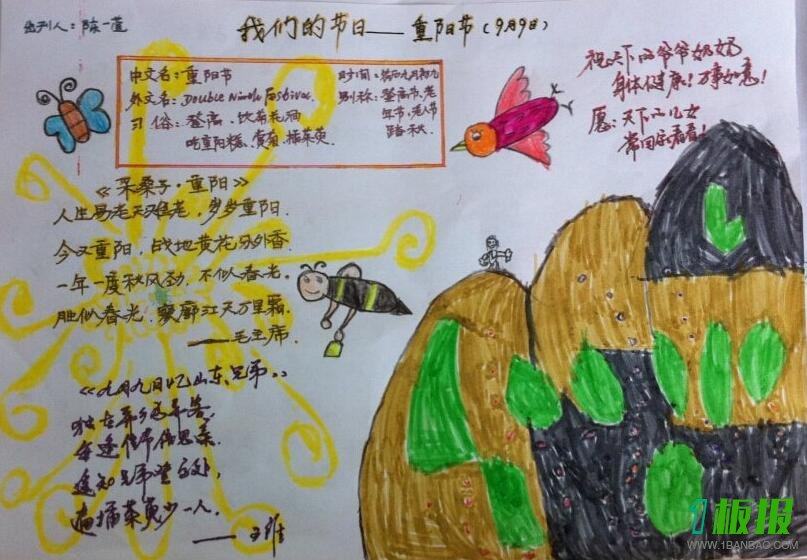 出刊人：陈一萱
我们的节日——重阳节（9月9日）
中文名：重阳节
外文名：Double Ninth Festival
习俗：登高、饮菊花酒
吃重阳糕、赏菊、插茱萸
时间：农历九月初九
别称：登高节、老
年节、老人节
踏秋
祝：天下的爷爷奶奶
身体健康！万事如意！
愿：天下的儿女
常回家看看！
《采桑子·重阳》
人生易老天难老，岁岁重阳.
今又重阳，战地黄花分外香.
一年一度秋风劲，不似春光.
胜似春光，寥廓江天万里霜.
——毛主席.
《九月九日忆山东兄弟。》
独在异乡为异客，
每逢佳节倍思亲.
遥知兄弟登高处，
遍插茱萸少一人.
——王维
1板报
WWW.1BANBAO.COM